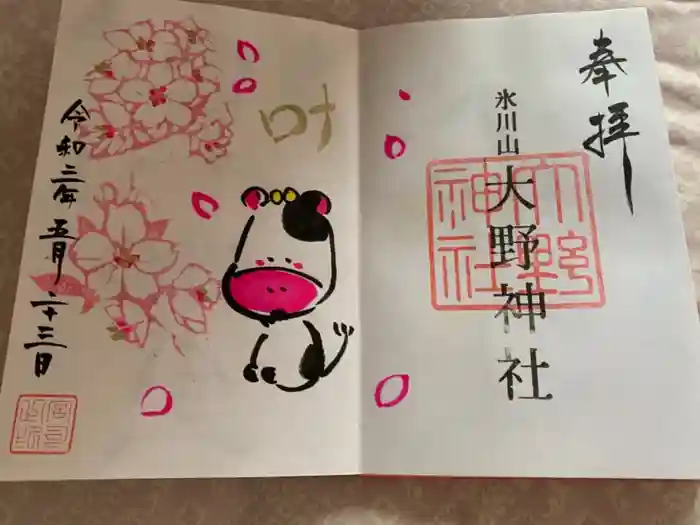 奉拝
氷川山
大野神社
大野神社
叶
令和三年五月二十三日